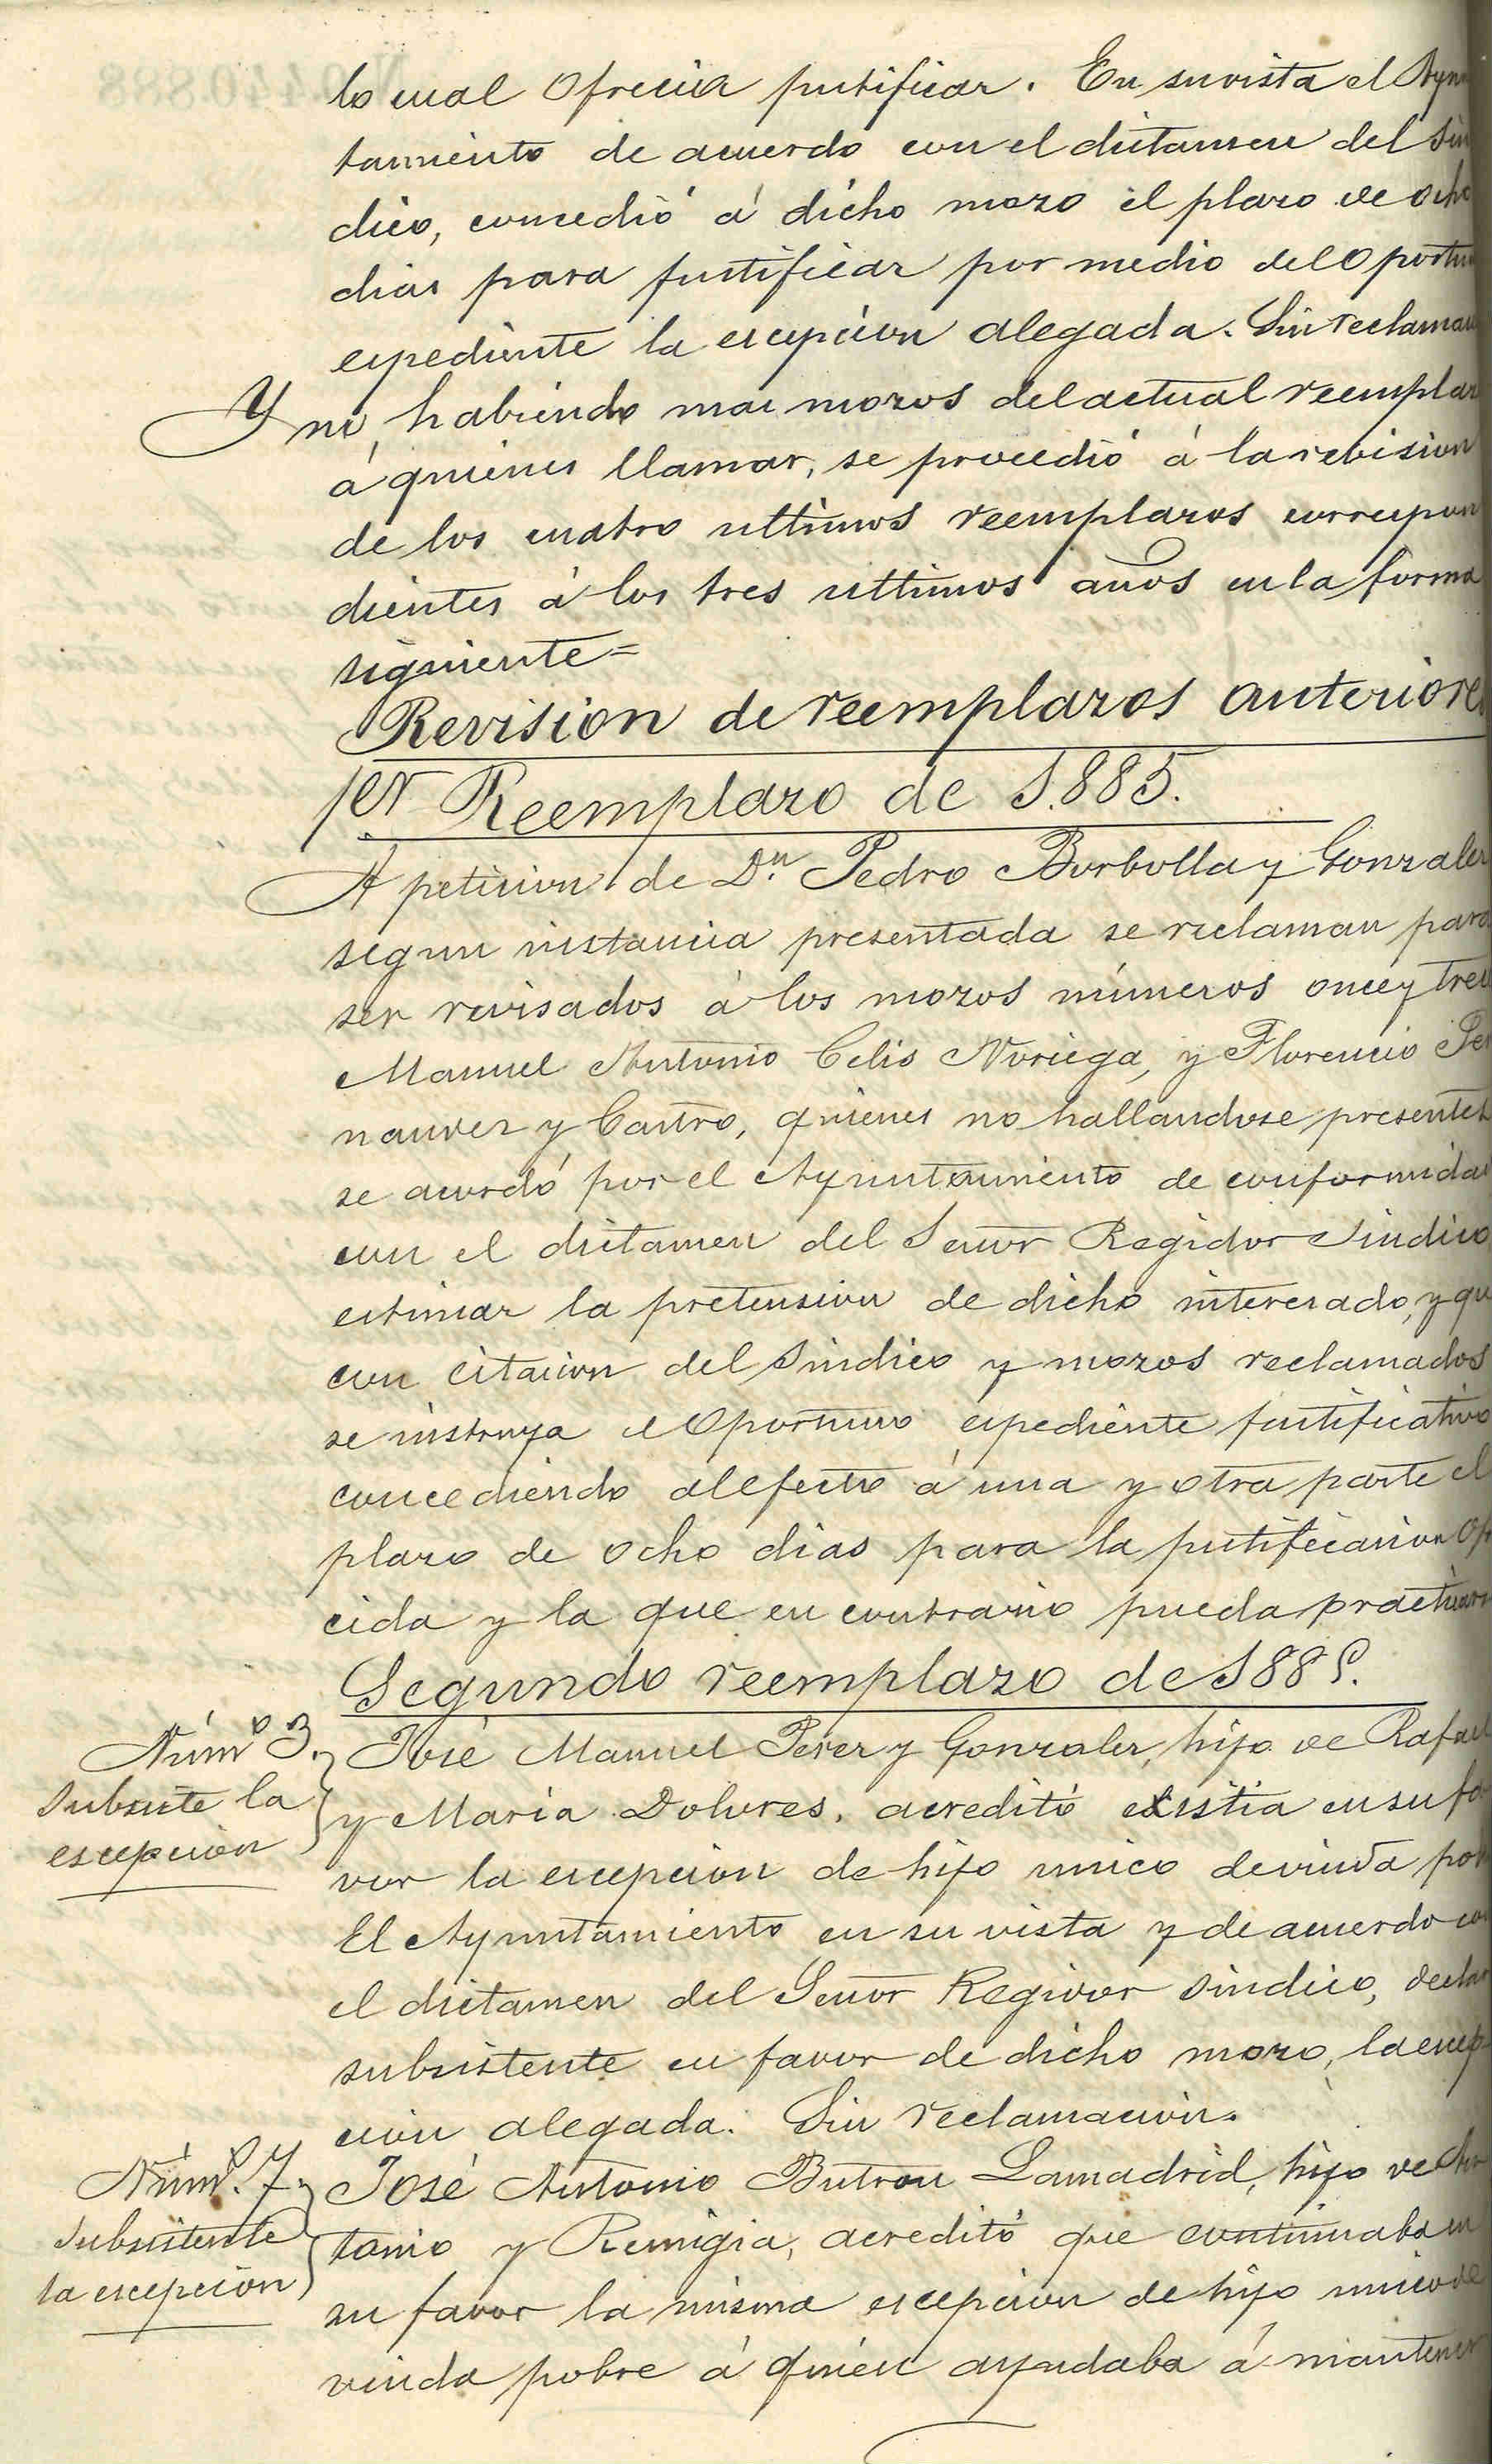 Nº 0.440.888
lo cual ofrecia justificar. En su vista el Ayun
tamiento de acuerdo con el dictamen del Sin
dico, concedió á dicho mozo el plazo de ocho
dias para justificar por medio del oportun
espediente la escepcion alegada. Sin reclamac
Y no habiendo mas mozos del actual reemplaz
á quienes llamar, se procedió á la revision
de los cuatro ultimos reemplazos correspon
dientes á los tres ultimos años en la forma
siguiente=
Revision de reemplazos anteriores
1er Reemplazo de 1.885.
A peticion de Dn. Pedro Borbolla y Gonzalez
segun instancia presentada se reclaman para
ser revisados á los mozos números once y trece
Manuel Antonio Celis Noriega, y Florencio Fer
nandez y Castro, quienes no hallandose presentes
se acordó por el Ayuntamiento de conformidad
con el dictamen del Señor Regidor Sindico
estimar la pretension de dicho interesado, y qu
con citacion del Sindico y mozos reclamados
se instruya el oportuno espediente justificativo
concediendo al efecto á una y otra parte el
plazo de ocho dias para la justificacion of
cida y la que en contrario pueda practicars
Segundo reemplazo de 1885.
Númº 3.
Subsiste la
escepcion
José Manuel Perez y Gonzalez, hijo de Rafael
y Maria Dolores, acreditó existia en su fa
vor la escepcion de hijo unico de viuda pob
El Ayuntamiento en su vista y de acuerdo con
el dictamen del Señor Regidor Sindico, declar
subsistente en favor de dicho mozo, la escep-
cion alegada. Sin reclamacion.
Númº. 7.
Subsistente
la escepcion
José Antonio Butron Lamadrid, hijo de An
tonio y Remigia, acreditó que continuaba en
su favor la misma escepcion de hijo unico de
viuda pobre á quien ayudaba á mantener